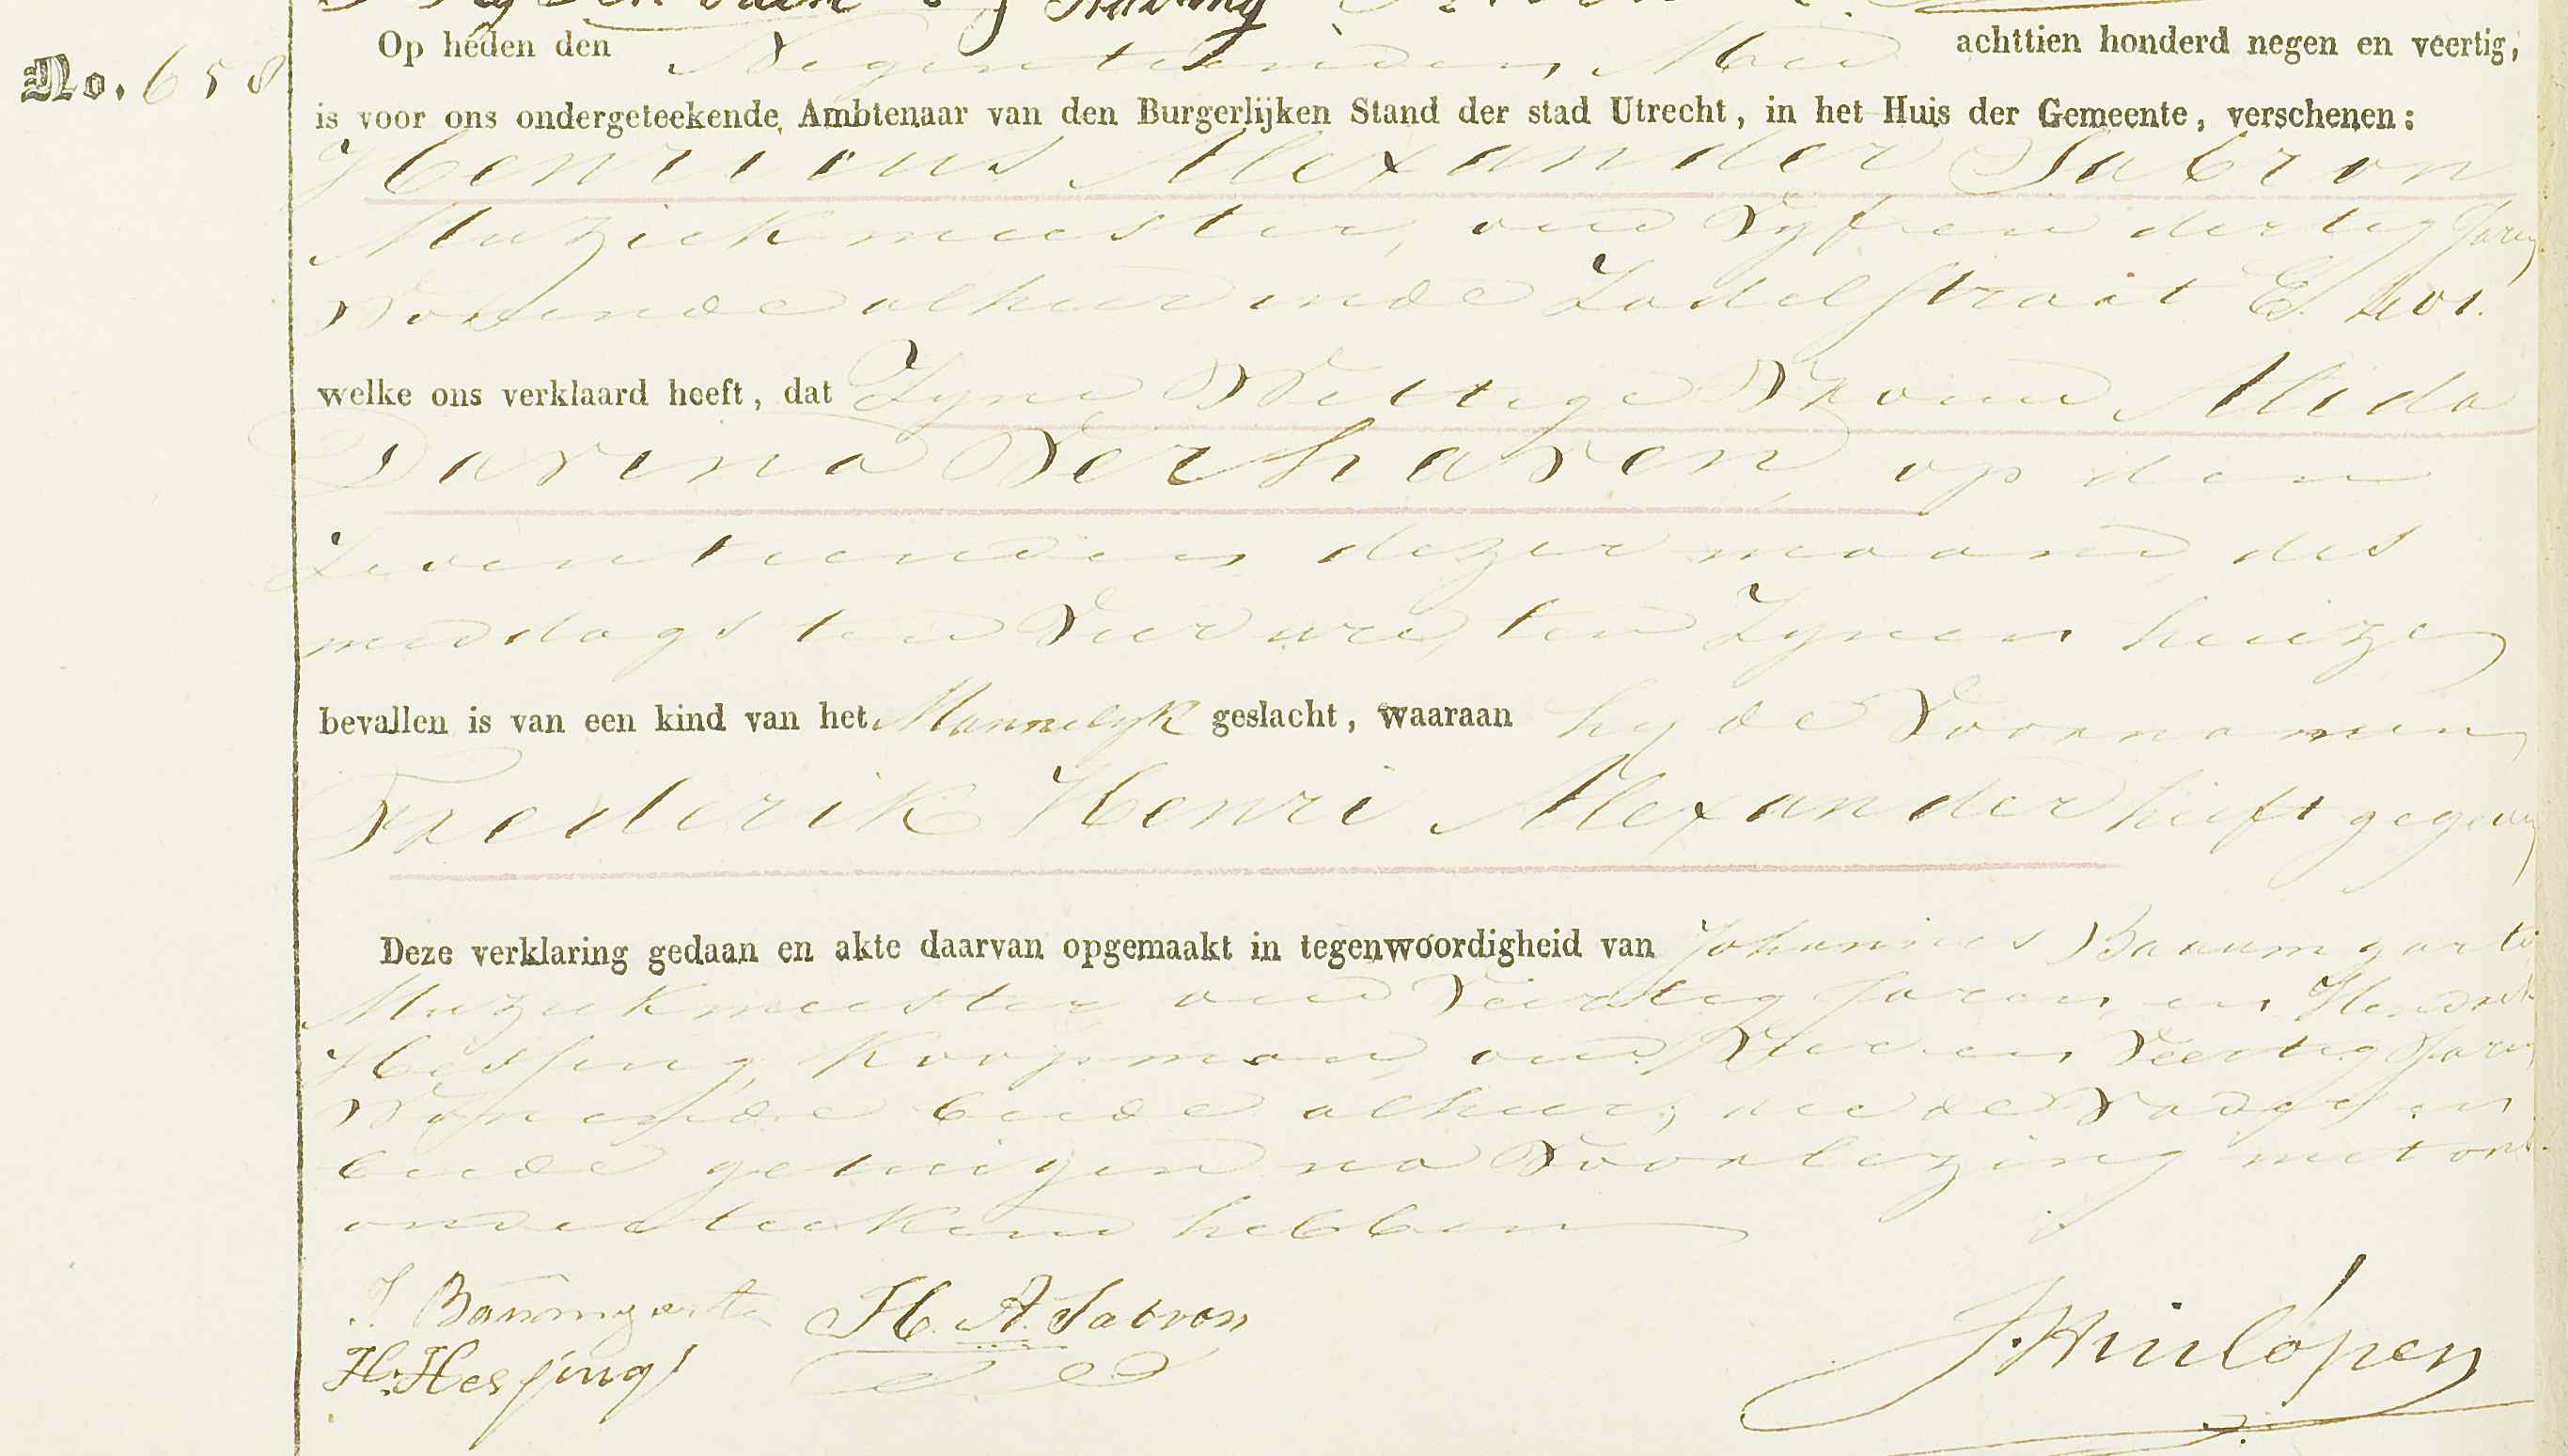 Op heden den Negentienden Mei achttien honderd negen en veertig,
No. 658
is voor ons ondergeteekende, Ambtenaar van den Burgerlijken Stand der stad Utrecht, in het Huis der Gemeente, verschenen:
Henricus Alexander Sabron
Muziekmeester, oud Vyf en dertig Jaren,
Wonende alhier in de Zadelstraat E.
welke ons verklaard heeft, dat Zyne Wettige Vrouw Alida
Davina Verhaven, op den
Zeventienden dezer maand, des
middags ten Vier ure, ten Zynen huize,
bevallen is van een kind van het Mannelyk geslacht, waaraan hy de Voornamen
Frederik Henri Alexander heeft gegeven
Deze verklaring gedaan en akte daarvan opgemaakt in tegenwoordigheid van Johannes
Muziekmeester oud Veertig Jaren, en Hendrik
Hessing, Koopman, oud Vier en Veertig Jaren,
Wonende beide alhier, die de Vader en
beide getuigen na Voorlezing met ons
onderteekend hebben
H. A. Sabron
H. Hessing
J. Hinlópen